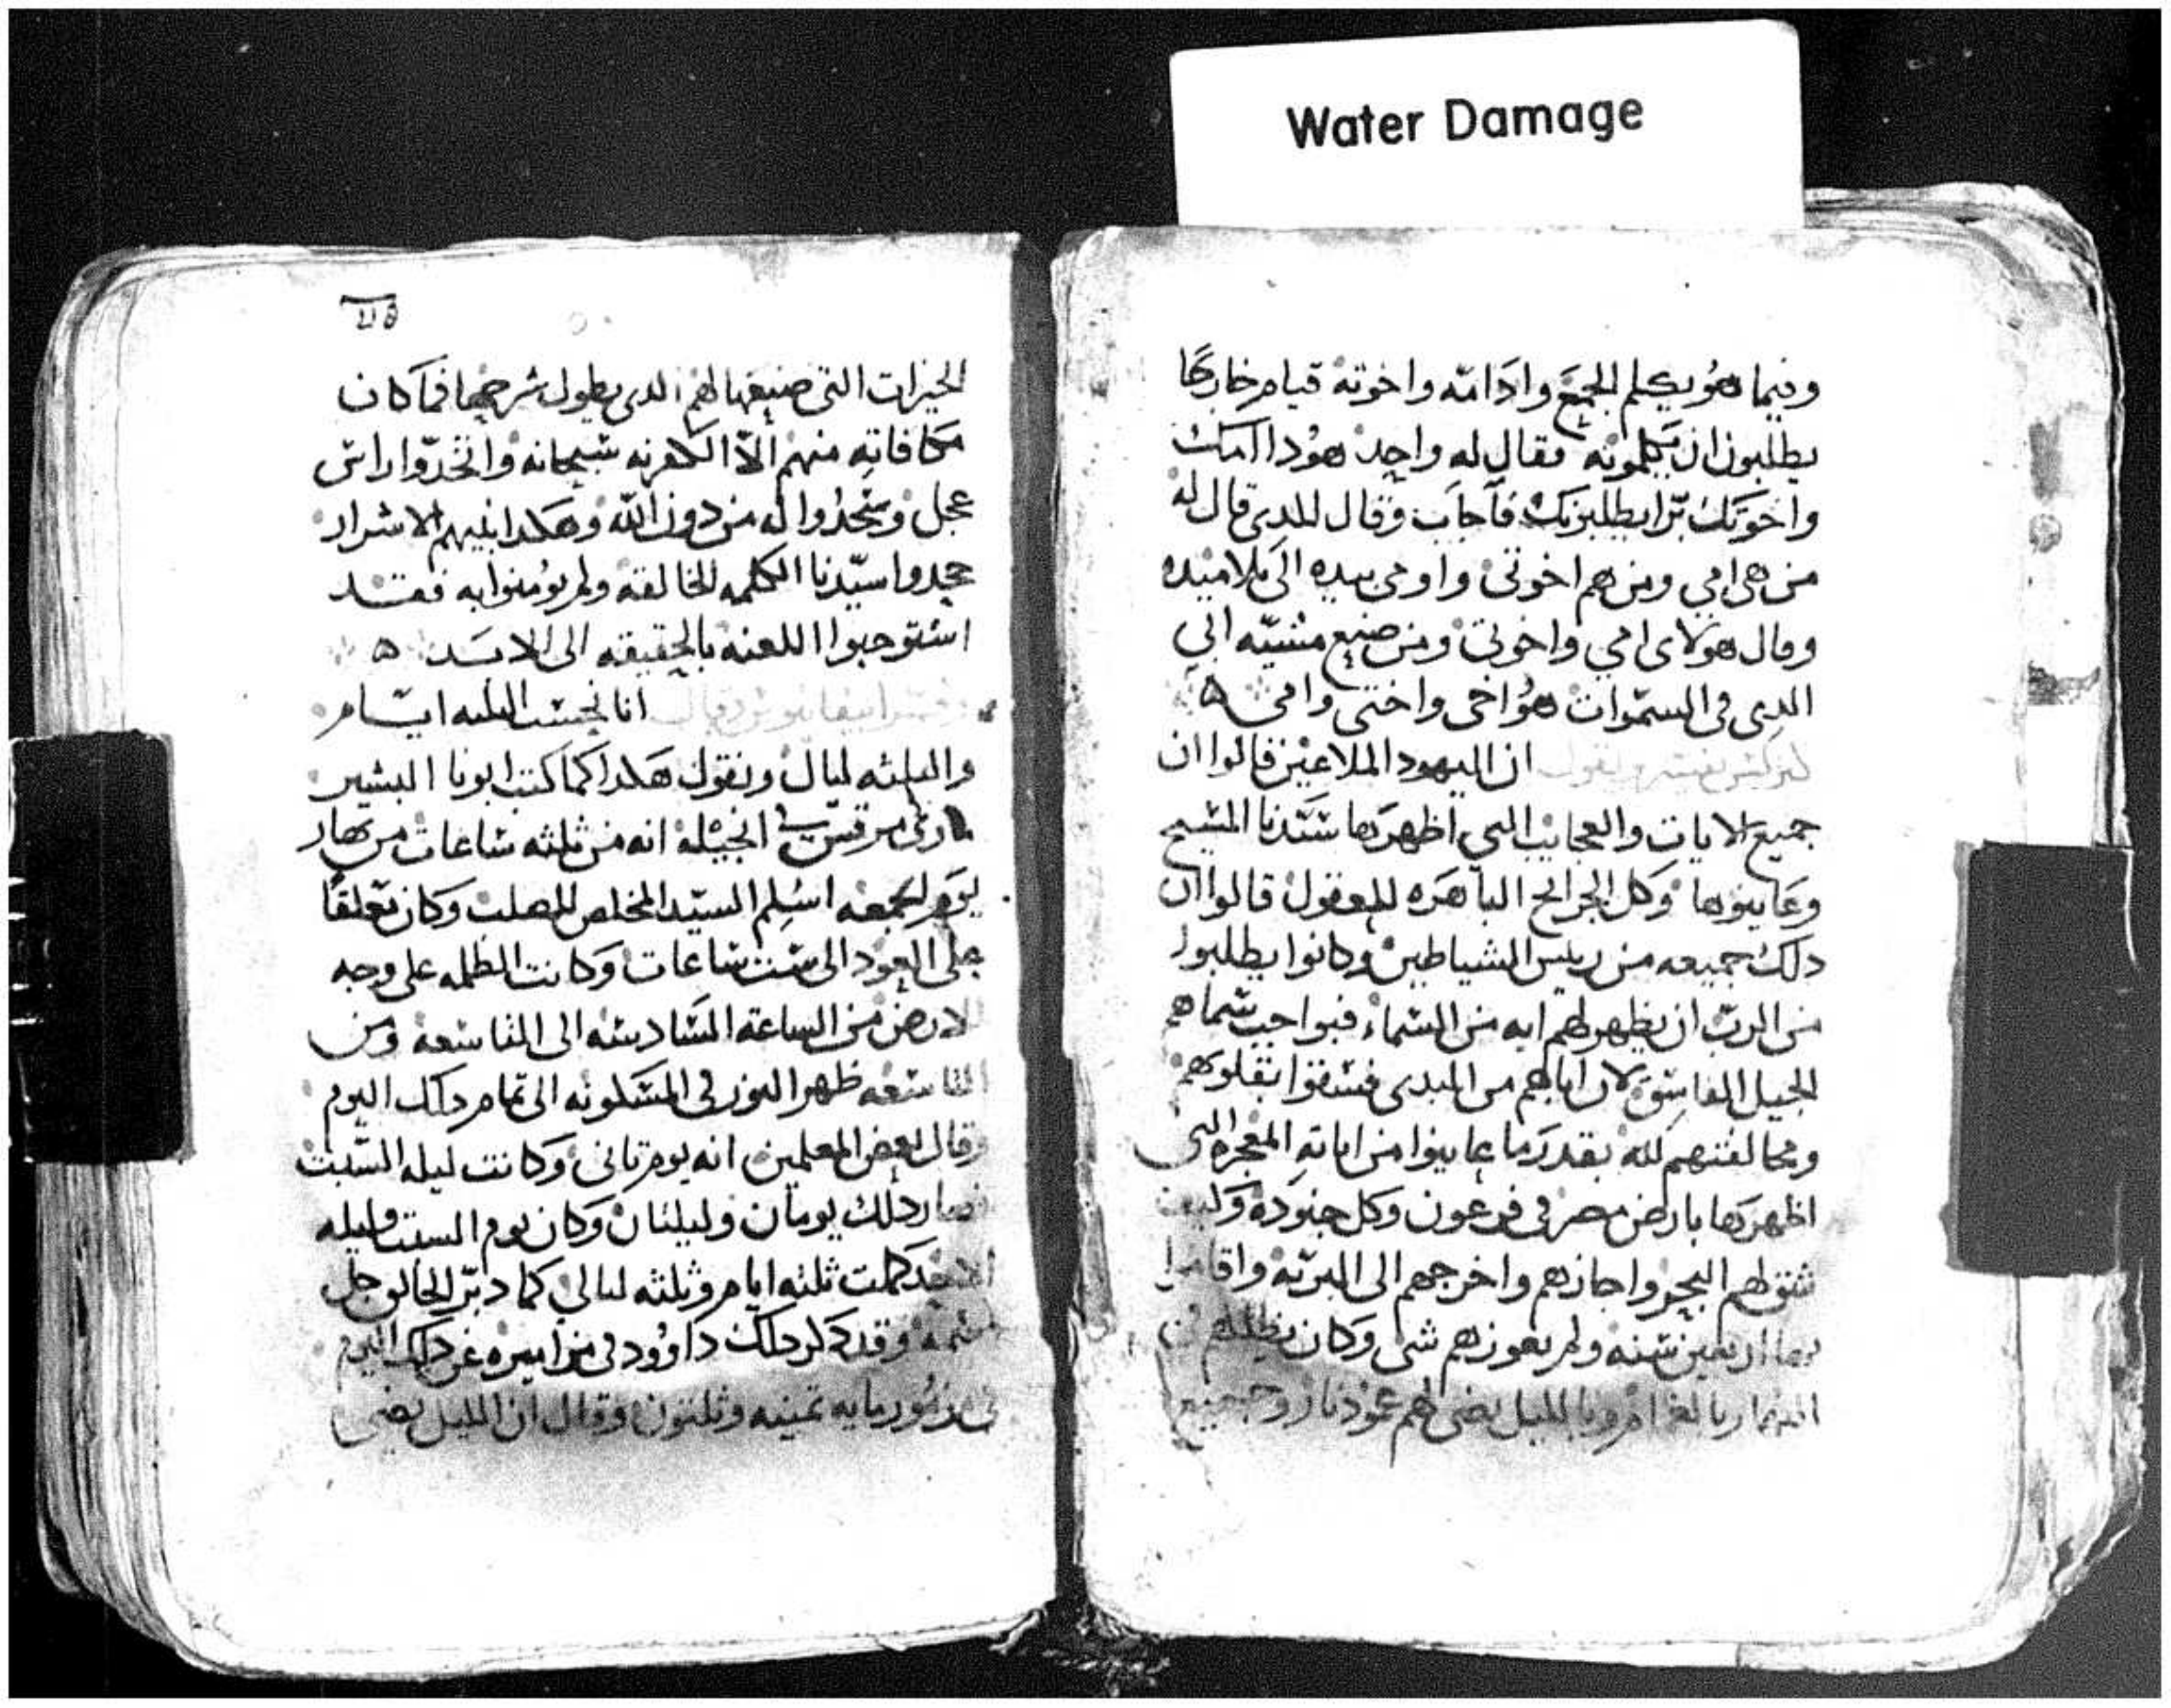 Water Damage
وفيما هو يكلم الجمع وادا امه واخوته قيام خارجًا
يطلبون ان يكلمونه فقال له واحد هودا امك
واخوتك برا يطلبونك فاجاب وقال للدي قال له
من هي امي ومن هم اخوتي واومى بيده الى تلاميده
وقال هولاى امي واخوتي ومن صنع مشيه ابي
الدي في السموات هو اخي واختي وامي
ان اليهود الملاعين قالوا ان
جميع الايات والعجايب التي اظهرها سيدنا المسيح
وعاينوها وكل الجرايح الباهره للعقول قالوا ان
دلك جميعه من رييس الشياطين وكانوا يطلبوا
من الرب ان يظهر لهم ايه من السماء فبواجب سماهم
الجيل الفاسق لان اباهم من المبدى فسقوا بقلوبهم
ومخالفتهم لله بقدر ما عاينوا من اياته المعجزه التي
اظهرها بارض مصر في فرعون وكل جنوده وكيف
شق لهم البحر واجازهم واخرجهم الى البريه واقاموا
بها اربعين سنه ولم يعوزهم شي وكان يظللهم
النهار بالغمام وبالليل يضي لهم عمود نار وجميع
الخيرات التي صنعها لهم الدي يطول شرحها فما كان
مكافاته منهم الا الكفر به سبحانه واتخدوا راس
عجل وسجدوا له من دون الله وهكدا ابنيهم الاشرار
جحدوا سيدنا الكلمه الخالقه ولم يومنوا به فقد
استوجبوا اللعنه بالحقيقه الى الابد
انا نحسب التلته ايام
والتلته ليال ونقول هكدا كما كتب ابونا البشير
ماري مرقس في انجيله انه من ثلثه ساعات من نهار
يوم الجمعه اسلم السيد المخلص للصلب وكان تعلقًا
على العود الى ست ساعات وكانت الظلمه على وجه
الارض من الساعة السادسه الى التاسعه ومن
التاسعه ظهر النور في المسكونه الى تمام دلك اليوم
وقال بعض المعلمين انه يوم تاني وكانت ليله السبت
فصار دلك يومان وليلتان وكان يوم السبت وليله
الاحد كملت ثلثه ايام وثلثه ليالي كما دبر الخالق جل
اسمه وقد دكر دلك داوود في مزاميره عن دلك اليوم
في مزمور مايه تمنيه وثلثون وقال ان الليل يضي